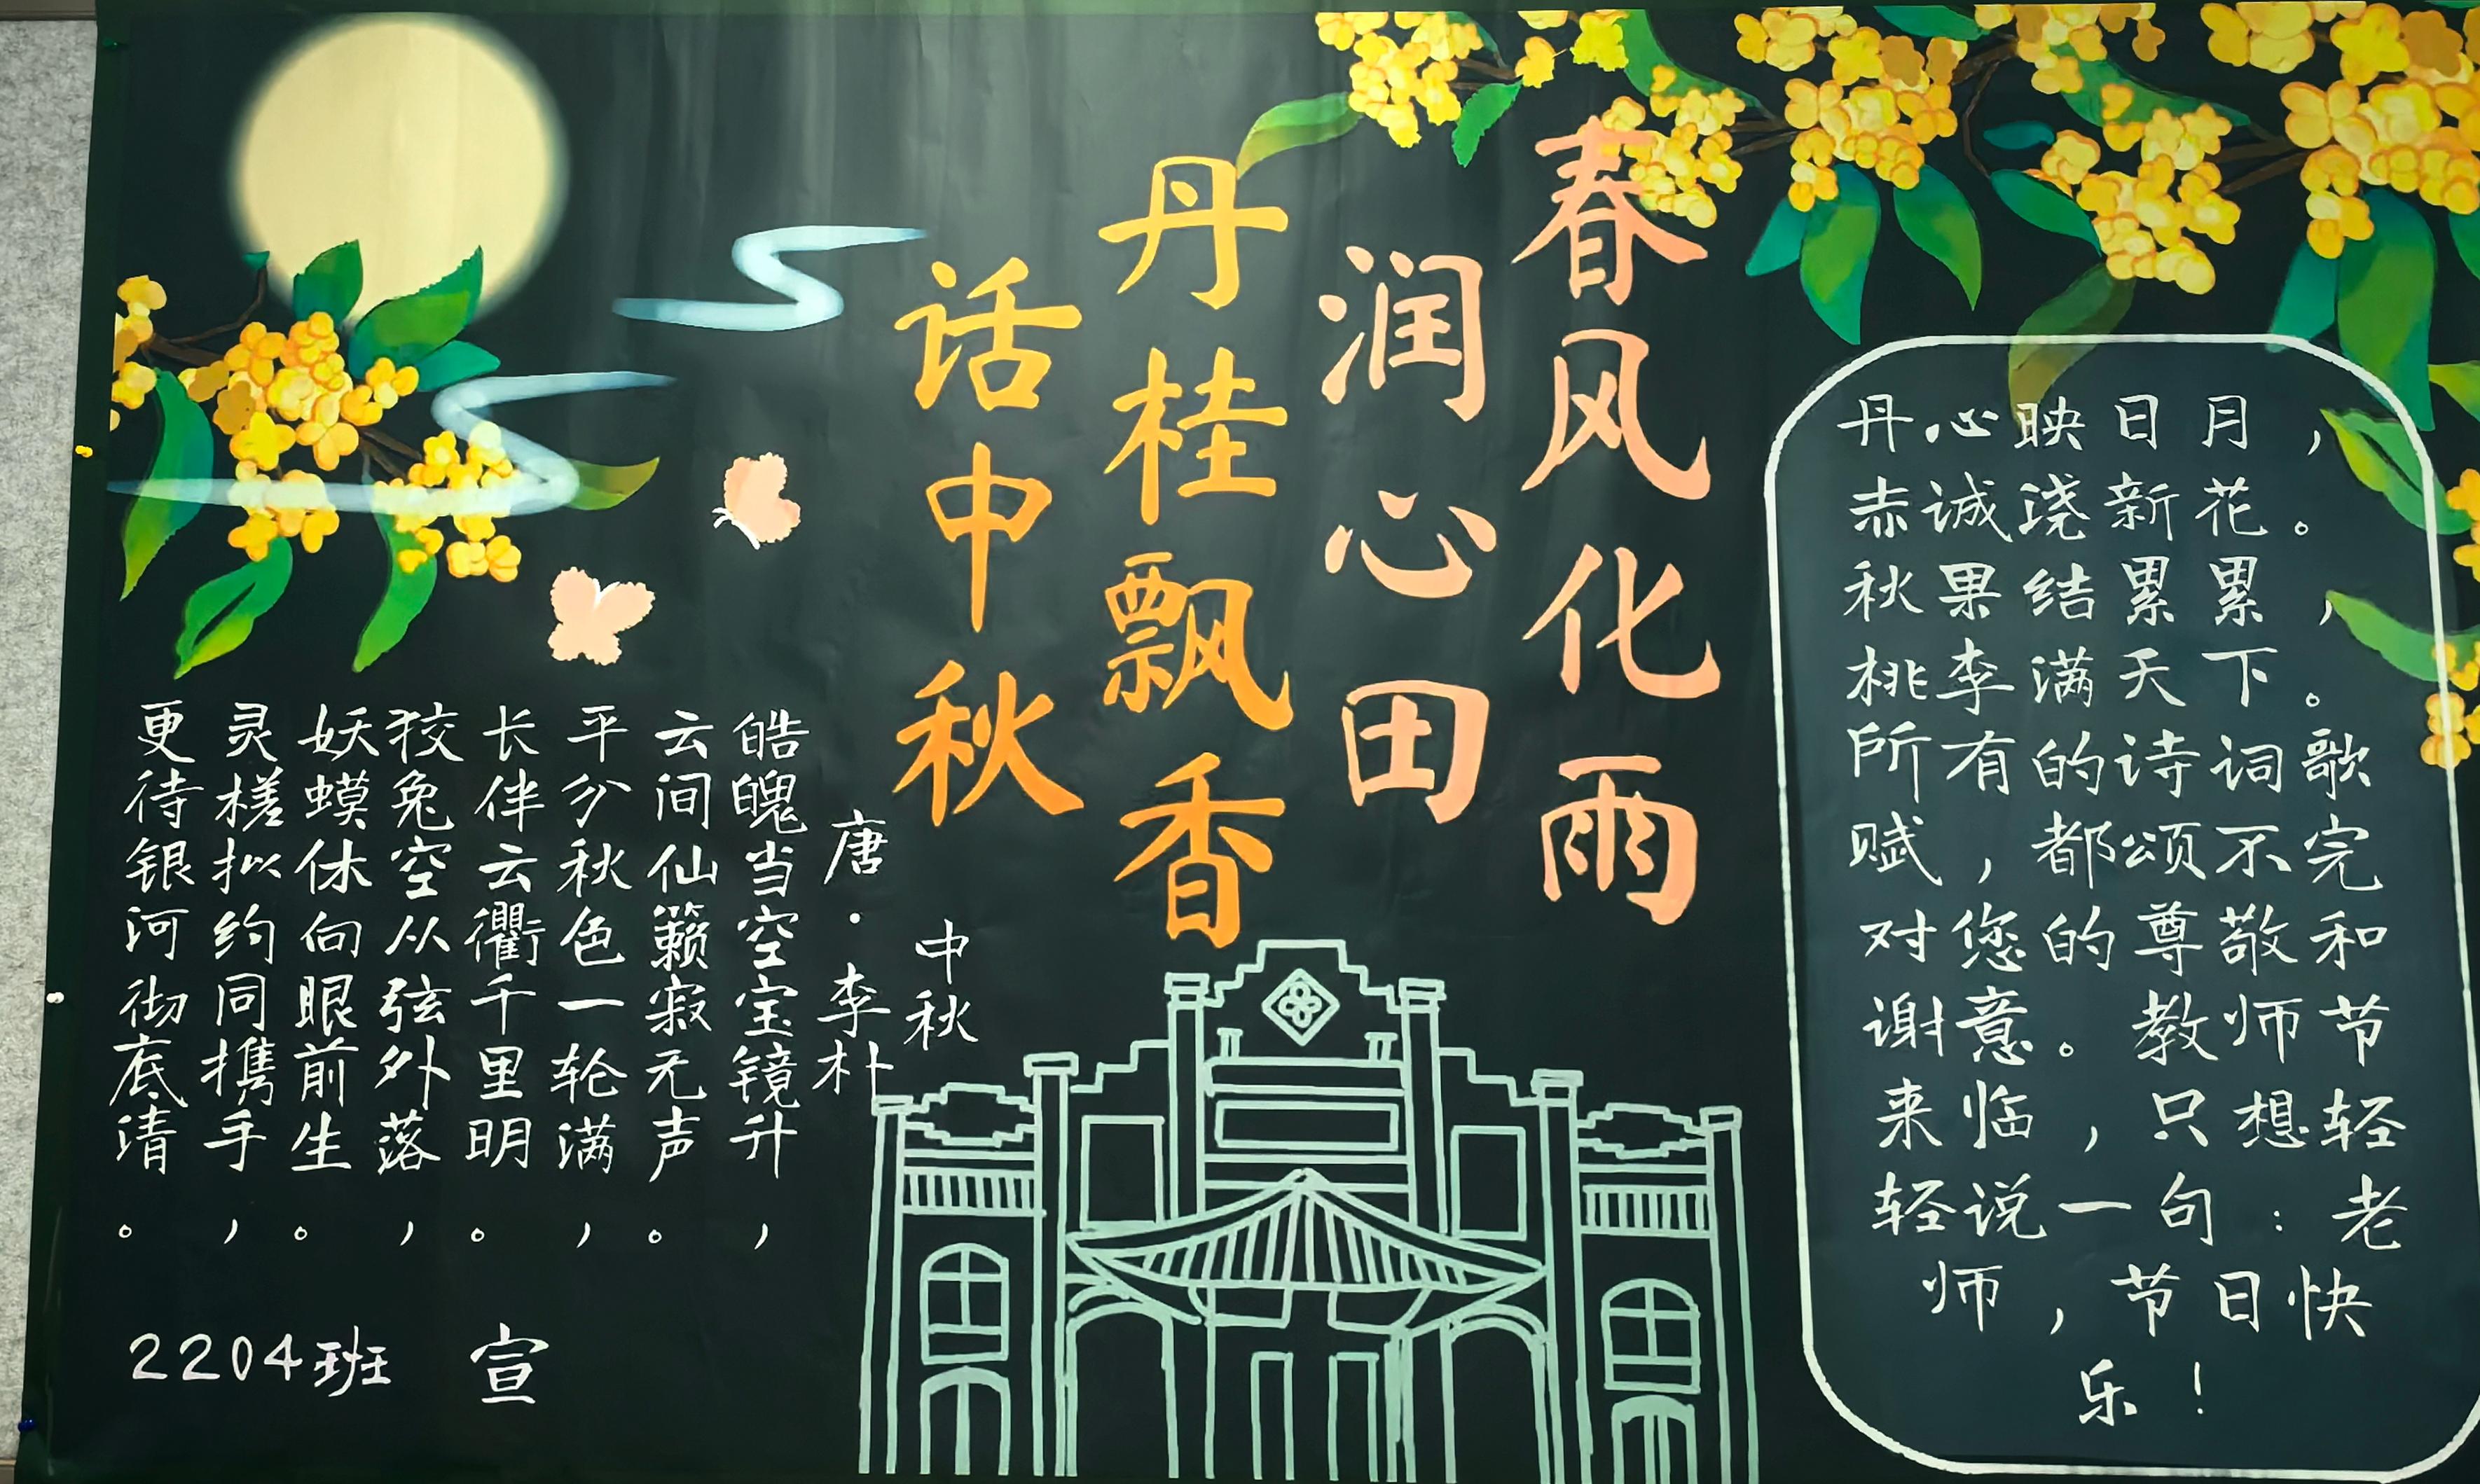 春风化雨
润心田
丹桂飘香
话中秋
丹心映日月，
赤诚浇新花。
秋果结累累，
桃李满天下。
所有的诗词歌
赋，都颂不完
对您的尊敬和
谢意。教师节
来临，只想轻
轻说一句：老
师，节日快
乐！
中秋
唐·李朴
皓魄当空宝镜升，
云间仙籁寂无声。
平分秋色一轮满，
长伴云衢千里明。
狡兔空从弦外落，
妖蟆休向眼前生。
灵槎拟约同携手，
更待银河彻底清。
2204班 宣